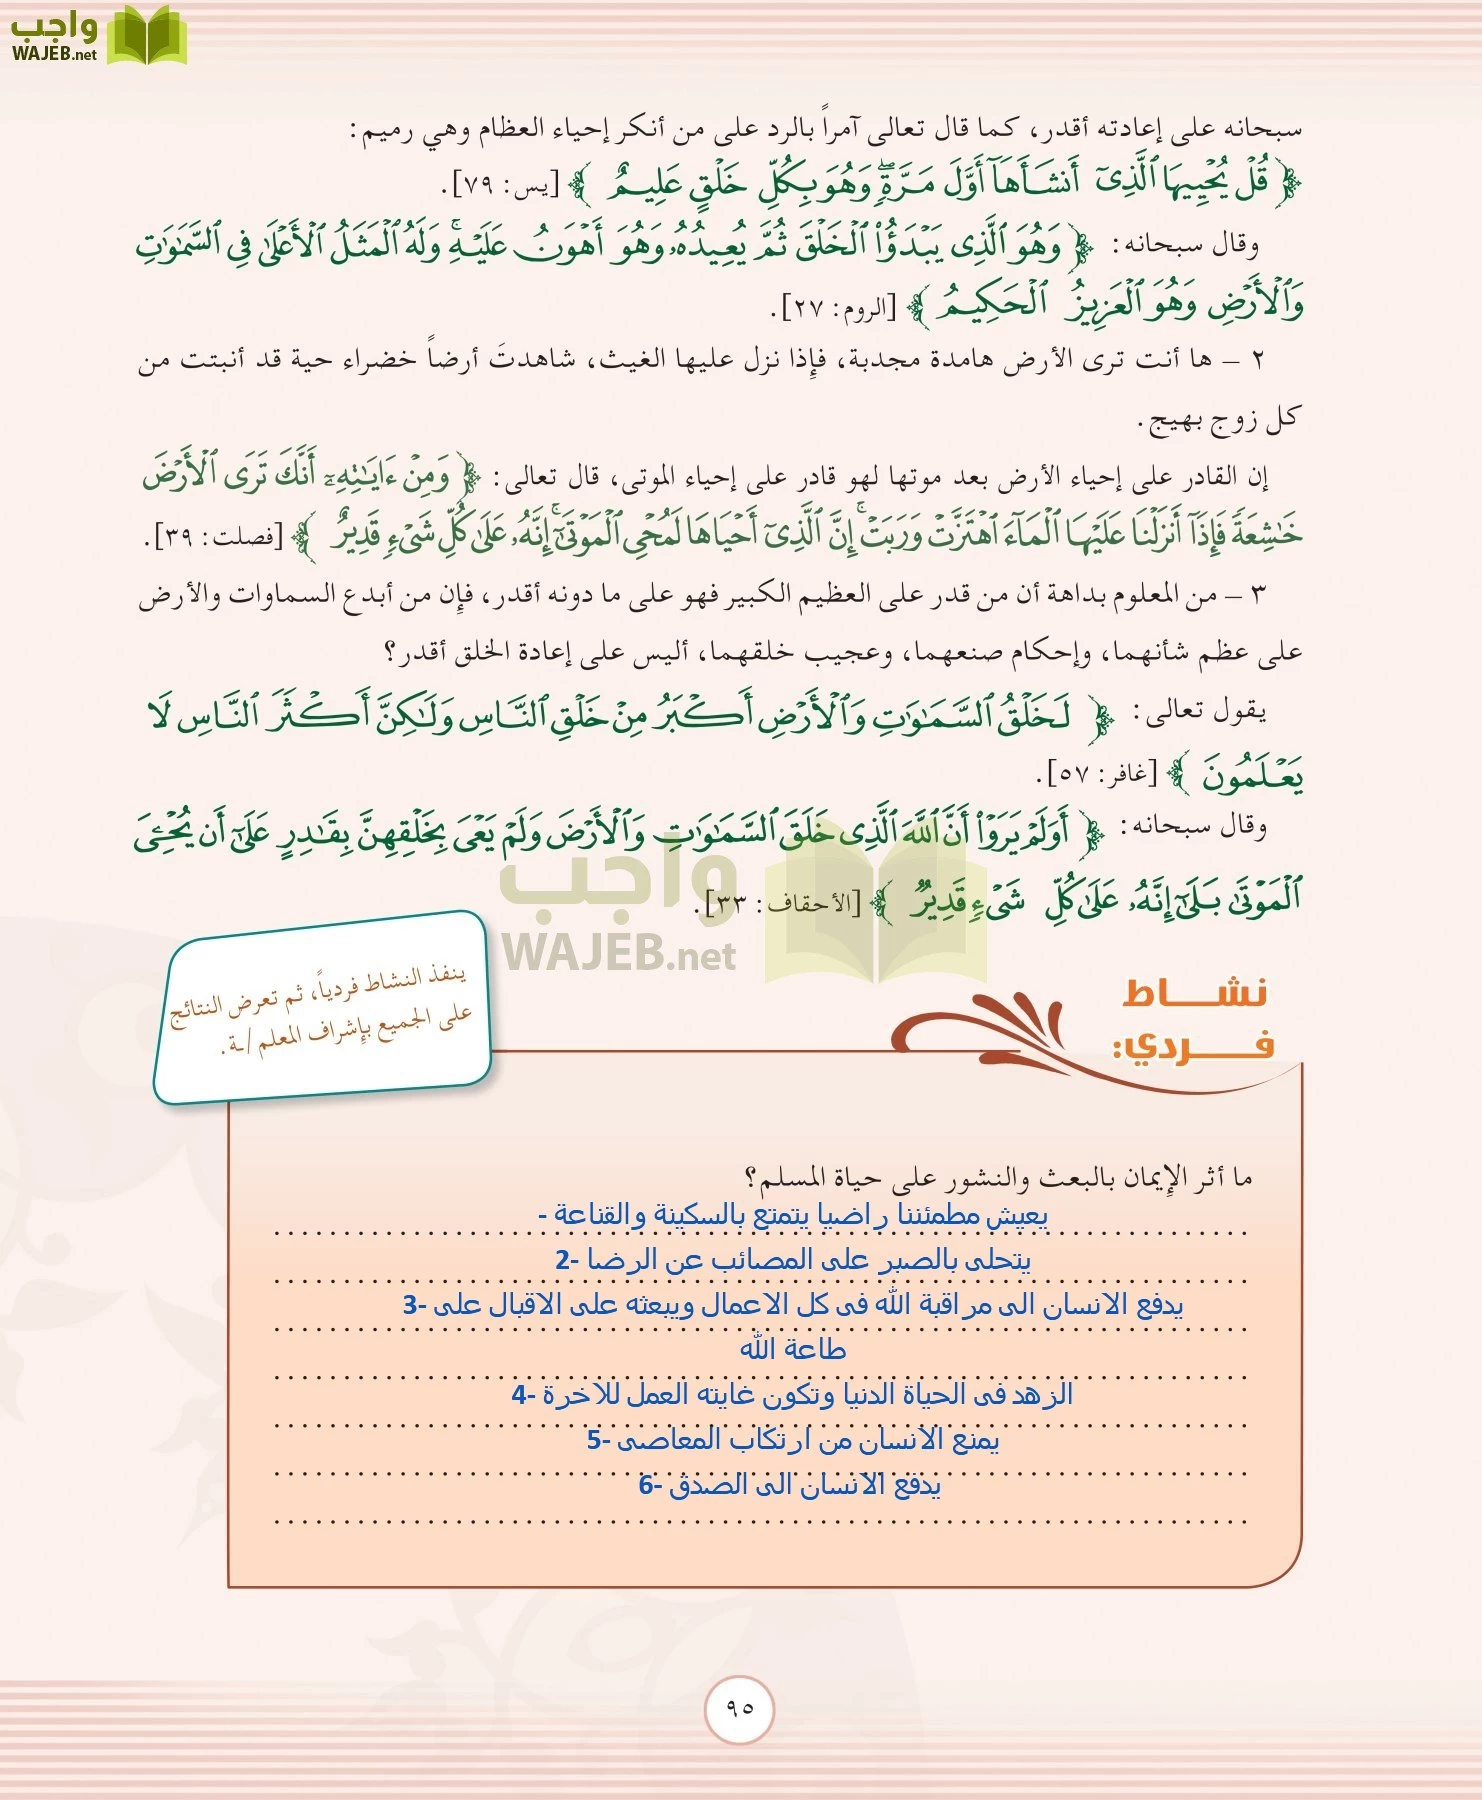 واجب
WAJEB.net
سبحانه على إعادته أقدر، كما قال تعالى آمراً بالرد على من أنكر إحياء العظام وهي رميم:
﴿ قُلْ يُحْيِيهَا ٱلَّذِىٓ أَنشَأَهَآ أَوَّلَ مَرَّةٍۖ وَهُوَ بِكُلِّ خَلْقٍ عَلِيمٌ ﴾ [يس: ٧٩].
وقال سبحانه: ﴿ وَهُوَ ٱلَّذِى يَبْدَؤُا۟ ٱلْخَلْقَ ثُمَّ يُعِيدُهُۥ وَهُوَ أَهْوَنُ عَلَيْهِۚ وَلَهُ ٱلْمَثَلُ ٱلْأَعْلَىٰ فِى ٱلسَّمَـٰوَٰتِ
وَٱلْأَرْضِ وَهُوَ ٱلْعَزِيزُ ٱلْحَكِيمُ ﴾ [الروم: ٢٧].
٢ – ها أنت ترى الأرض هامدة مجدبة، فإذا نزل عليها الغيث، شاهدتَ أرضاً خضراء حية قد أنبتت من
كل زوج بهيج.
إن القادر على إحياء الأرض بعد موتها لهو قادر على إحياء الموتى، قال تعالى: ﴿ وَمِنْ ءَايَـٰتِهِۦٓ أَنَّكَ تَرَى ٱلْأَرْضَ
خَـٰشِعَةً فَإِذَآ أَنزَلْنَا عَلَيْهَا ٱلْمَآءَ ٱهْتَزَّتْ وَرَبَتْۚ إِنَّ ٱلَّذِىٓ أَحْيَاهَا لَمُحْىِ ٱلْمَوْتَىٰٓۚ إِنَّهُۥ عَلَىٰ كُلِّ شَىْءٍ قَدِيرٌ ﴾ [فصلت: ٣٩].
٣ – من المعلوم بداهة أن من قدر على العظيم الكبير فهو على ما دونه أقدر، فإن من أبدع السماوات والأرض
على عظم شأنهما، وإحكام صنعهما، وعجيب خلقهما، أليس على إعادة الخلق أقدر؟
يقول تعالى: ﴿ لَخَلْقُ ٱلسَّمَـٰوَٰتِ وَٱلْأَرْضِ أَكْبَرُ مِنْ خَلْقِ ٱلنَّاسِ وَلَـٰكِنَّ أَكْثَرَ ٱلنَّاسِ لَا
يَعْلَمُونَ ﴾ [غافر: ٥٧].
وقال سبحانه: ﴿ أَوَلَمْ يَرَوْا۟ أَنَّ ٱللَّهَ ٱلَّذِى خَلَقَ ٱلسَّمَـٰوَٰتِ وَٱلْأَرْضَ وَلَمْ يَعْىَ بِخَلْقِهِنَّ بِقَـٰدِرٍ عَلَىٰٓ أَن يُحْـِۧىَ
ٱلْمَوْتَىٰ بَلَىٰٓ إِنَّهُۥ عَلَىٰ كُلِّ شَىْءٍ قَدِيرٌ ﴾ [الأحقاف: ٣٣].
واجب
WAJEB.net
نشـــاط
فــــردي:
ينفذ النشاط فردياً، ثم تعرض النتائج
على الجميع بإشراف المعلم /ـة.
ما أثر الإيمان بالبعث والنشور على حياة المسلم؟
يعيش مطمئننا راضيا يتمتع بالسكينة والقناعة -
يتحلى بالصبر على المصائب عن الرضا -2
يدفع الانسان الى مراقبة الله فى كل الاعمال ويبعثه على الاقبال على -3
طاعة الله
الزهد فى الحياة الدنيا وتكون غايته العمل للاخرة -4
يمنع الانسان من ارتكاب المعاصى -5
يدفع الانسان الى الصدق -6
٩٥